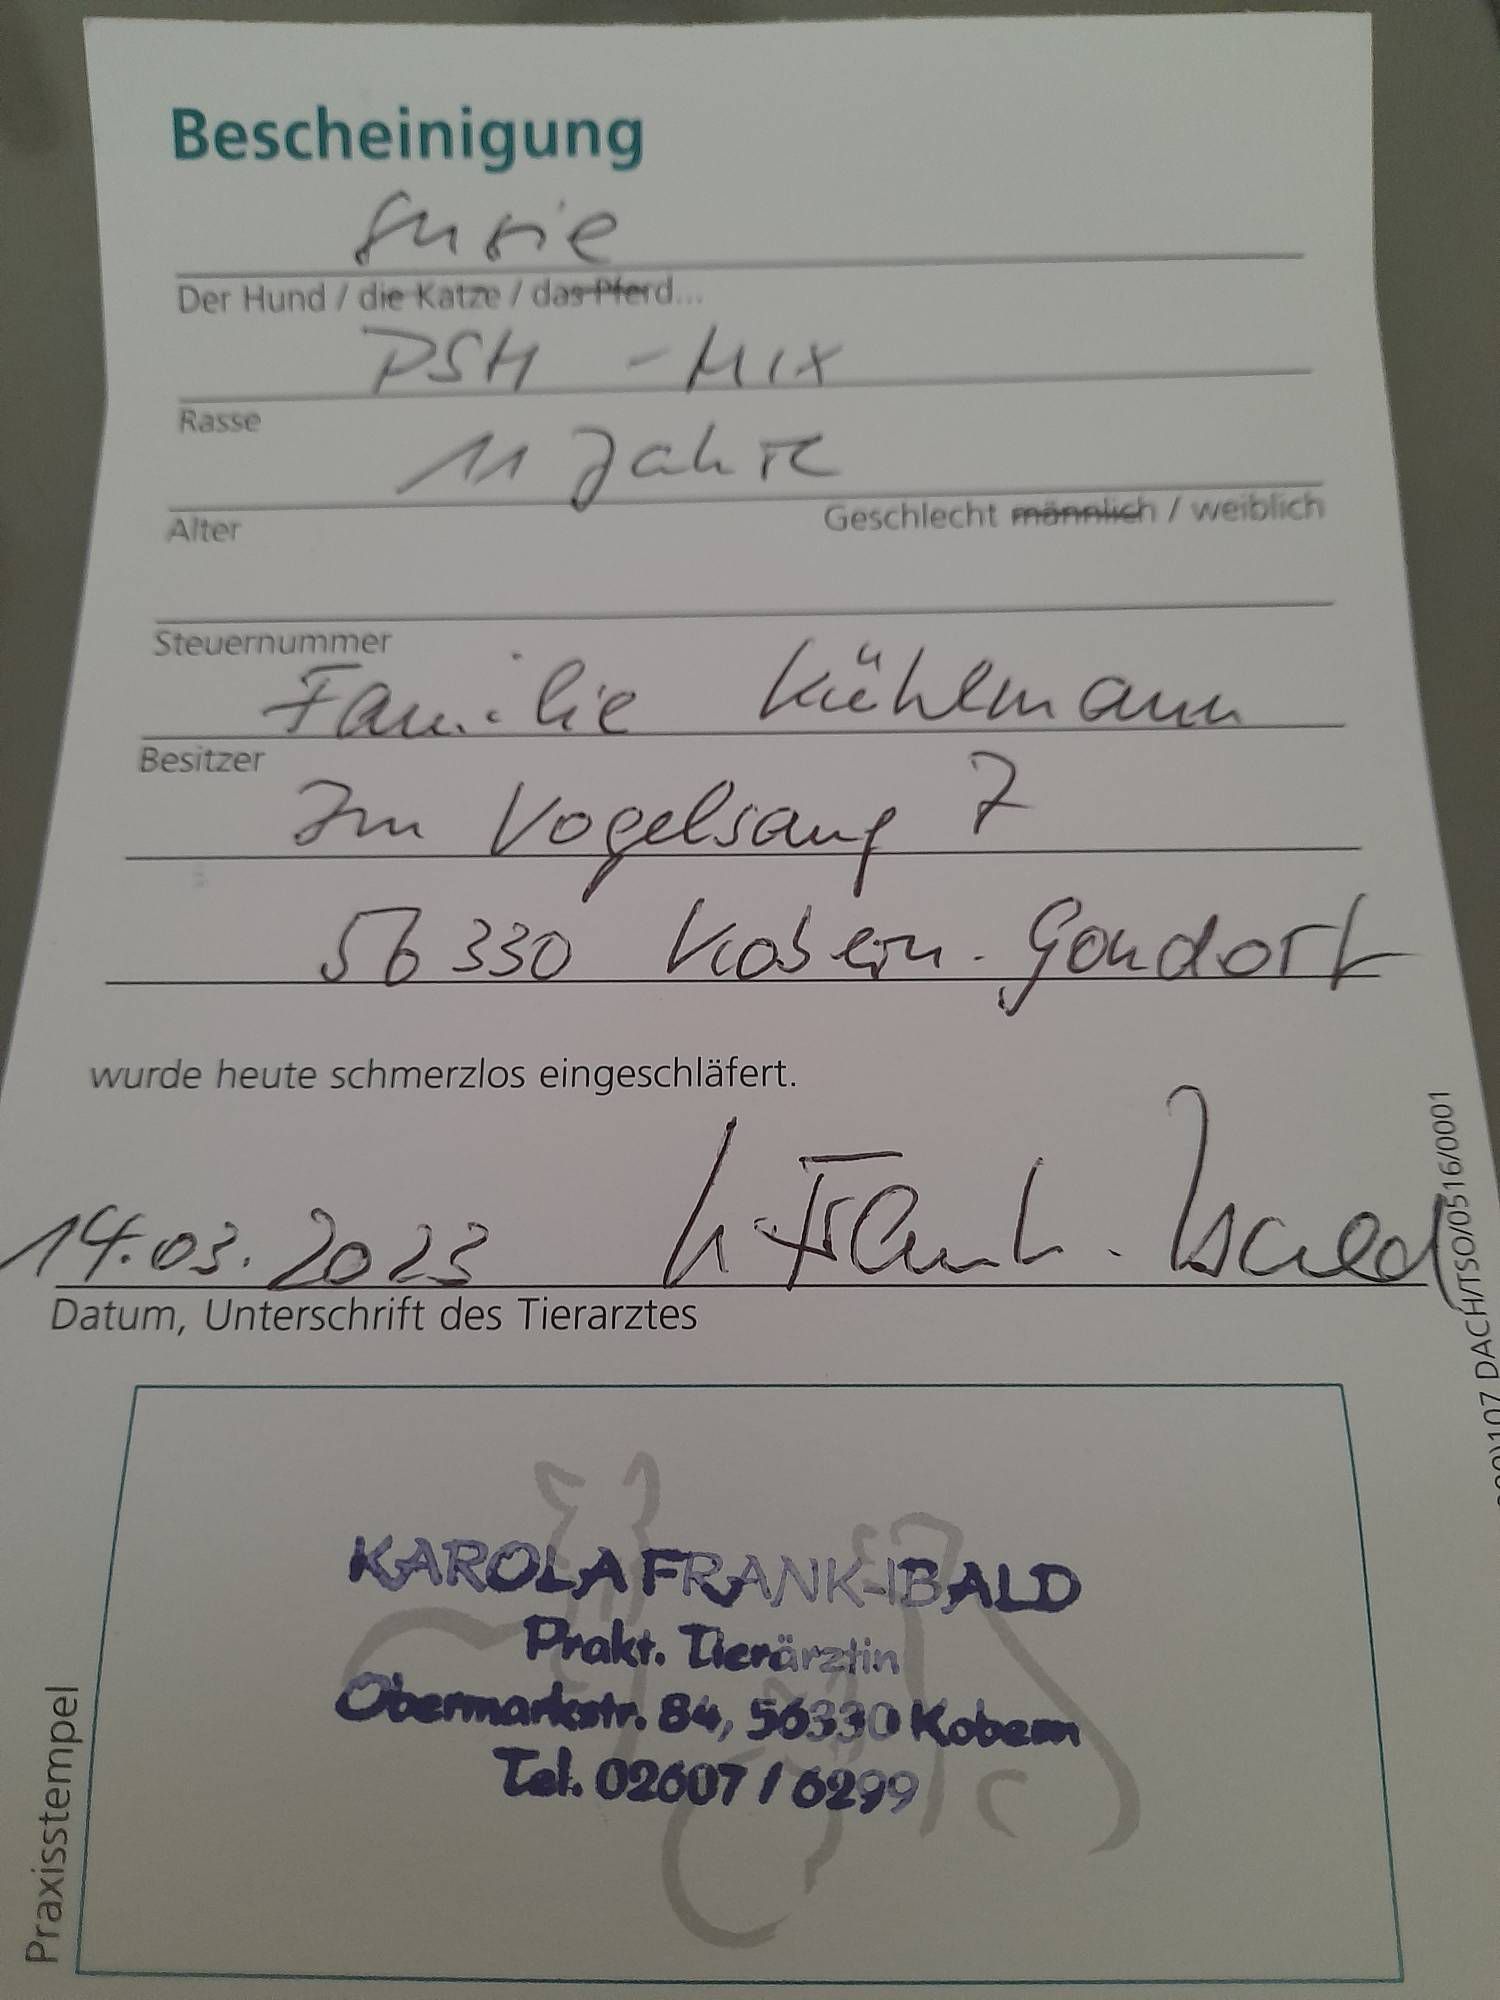 Bescheinigung
Susie
Der Hund / die Katze / das Pferd...
DSH - Mix
Rasse
11 Jahre
Alter
Geschlecht männlich / weiblich
Steuernummer
Familie Kühlmann
Besitzer
Im Vogelsang 7
56330 Kobern-Gondorf
wurde heute schmerzlos eingeschläfert.
14.03.2023 K. Frank-Ibald
Datum, Unterschrift des Tierarztes
107 DACH/TSO/0516/0001
Praxisstempel
KAROLA FRANK-IBALD
Prakt. Tierärztin
Obermarkstr. 84, 56330 Kobern
Tel. 02607 / 6299